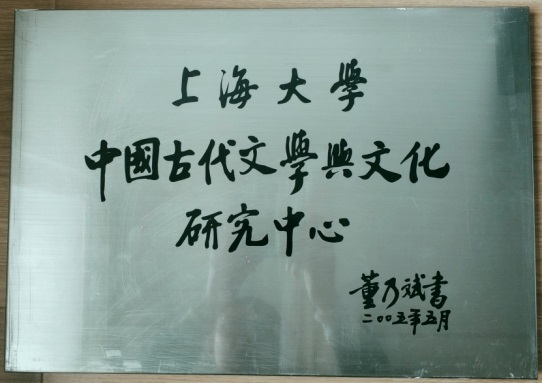 上海大學
中國古代文學與文化
研究中心
董乃斌書
二〇〇五年五月